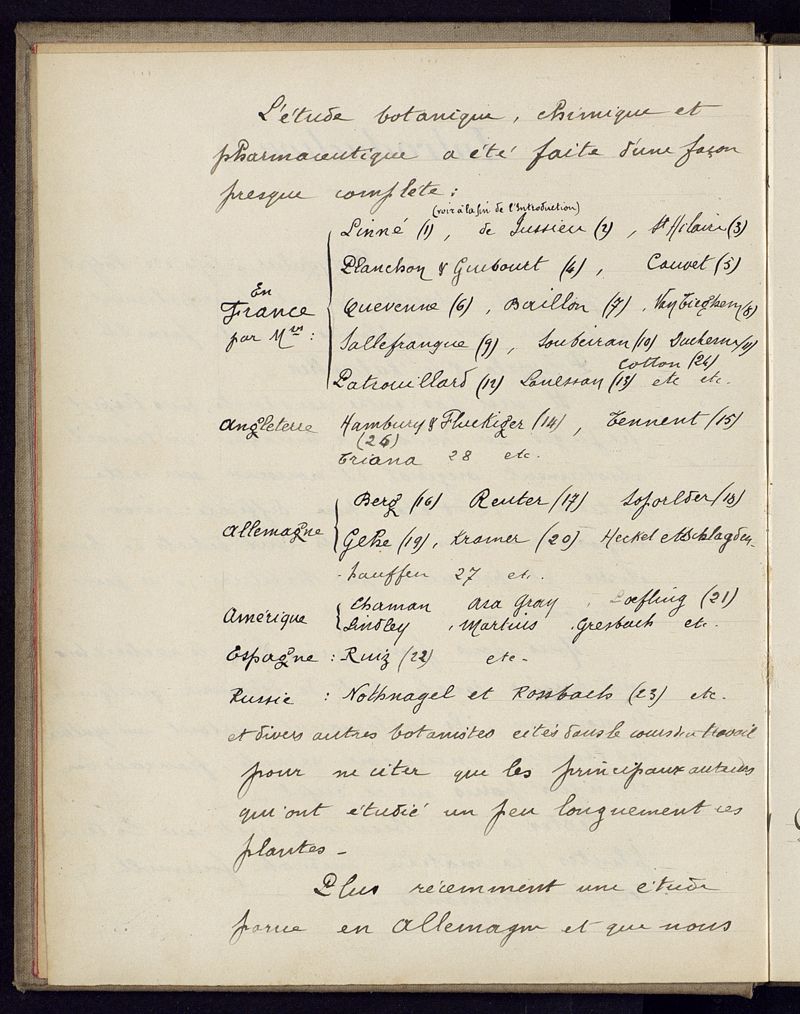 L'étude botanique, chimique et
pharmaceutique a été faite d'une façon
presque complète :
(voir à la fin de l'Introduction)
Linné (1), de Jussieu (2), St Hilaire (3)
Planchon & Guibourt (4), Cauvet (5)
En
France
par Mrs :
Quevenne (6), Baillon (7), Van Tieghem (8)
Sallefranque (9), Soubeiran (10) Duchesne (11)
Cotton (24)
Patrouillard (12) Lanessan (13) etc etc.
Angleterre Hambury & Fluckiger (14), Tennent (15)
(26)
Triana 28 etc.
Berg (16) Reuter (17) (18)
Allemagne
Gehe (19), Kramer (20) Heckel et Schlagden-
hauffen 27 etc.
Amérique
Chaman Asa Gray, Loefling (21)
Lindley, Martius, Gresbach etc.
Espagne : Ruiz (22) etc-
Russie : Nothnagel et Rossbach (23) etc.
et divers autres botanistes cités dans le cours du travail
pour ne citer que les principaux auteurs
qui ont étudié un peu longuement ces
plantes -
Plus récemment une étude
parue en Allemagne et que nous